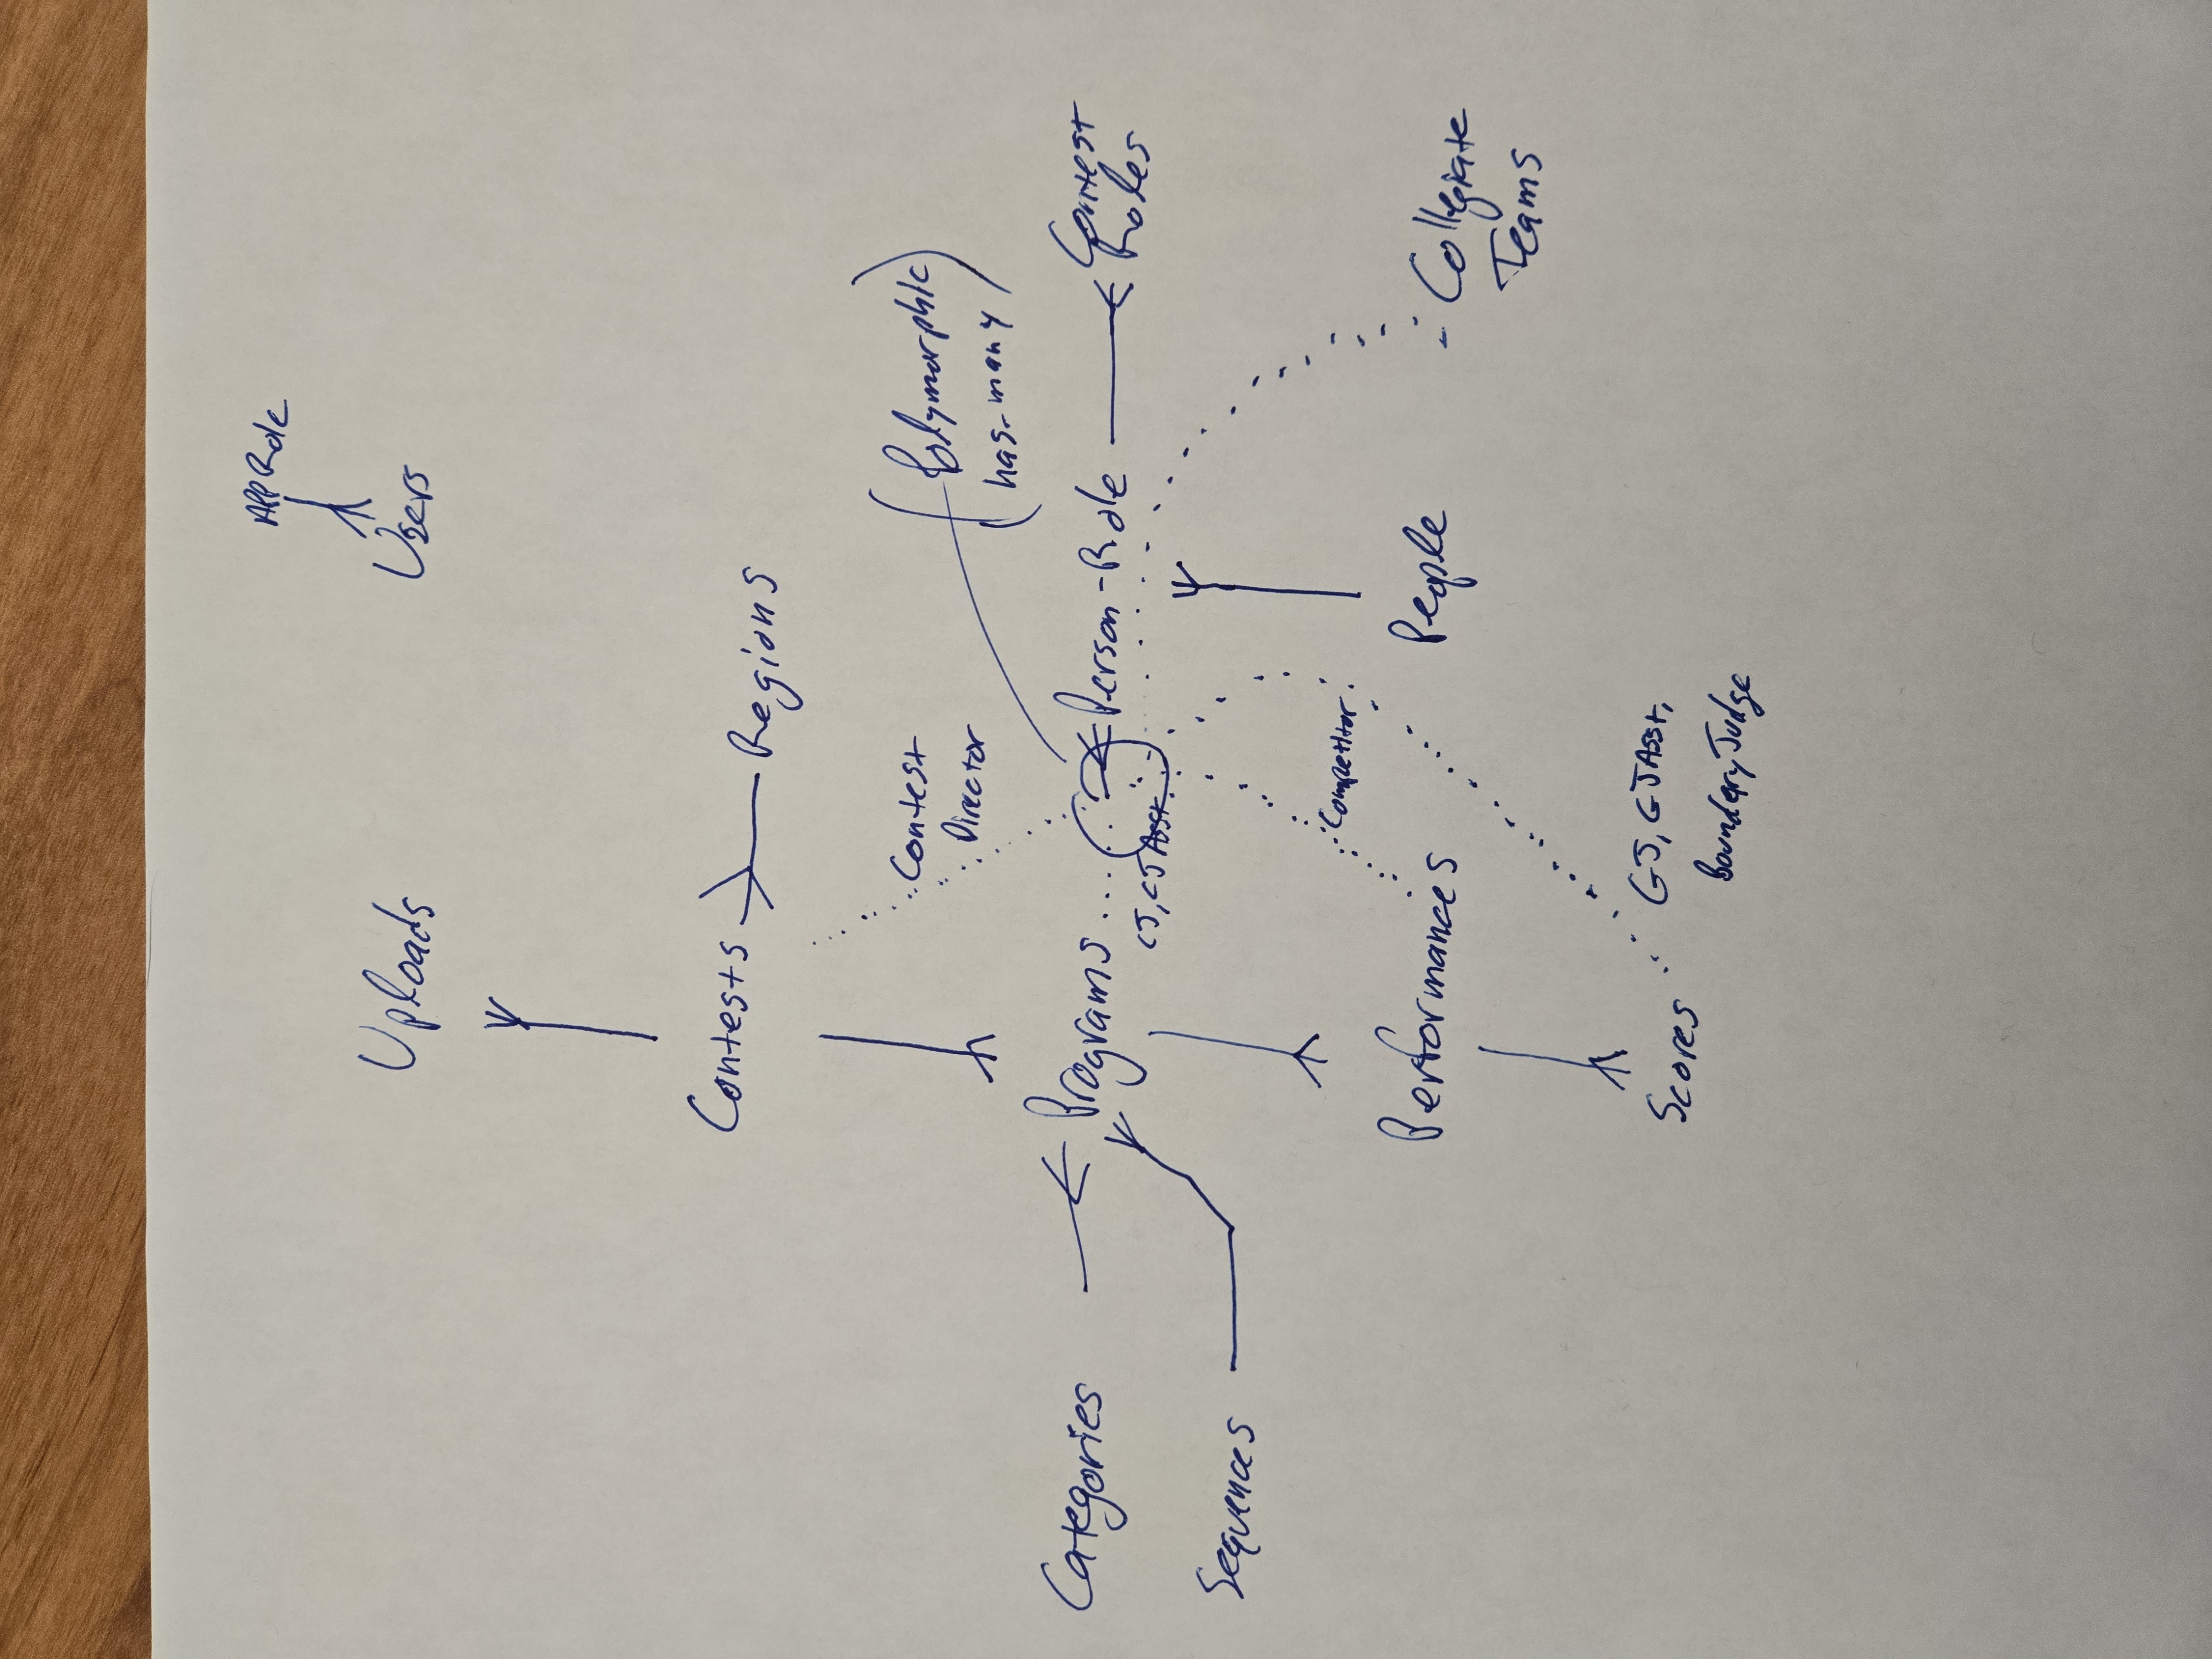 App Role
Users
Uploads
Contests
Regions
Contest
Director
Polymorphic
has-many
Categories
Programs
Person-Role
Contest
Roles
CJ, CJ Asst
Sequences
Competitor
Performances
People
Collegiate
Teams
Scores
GJ, GJ Asst,
Boundery Judge